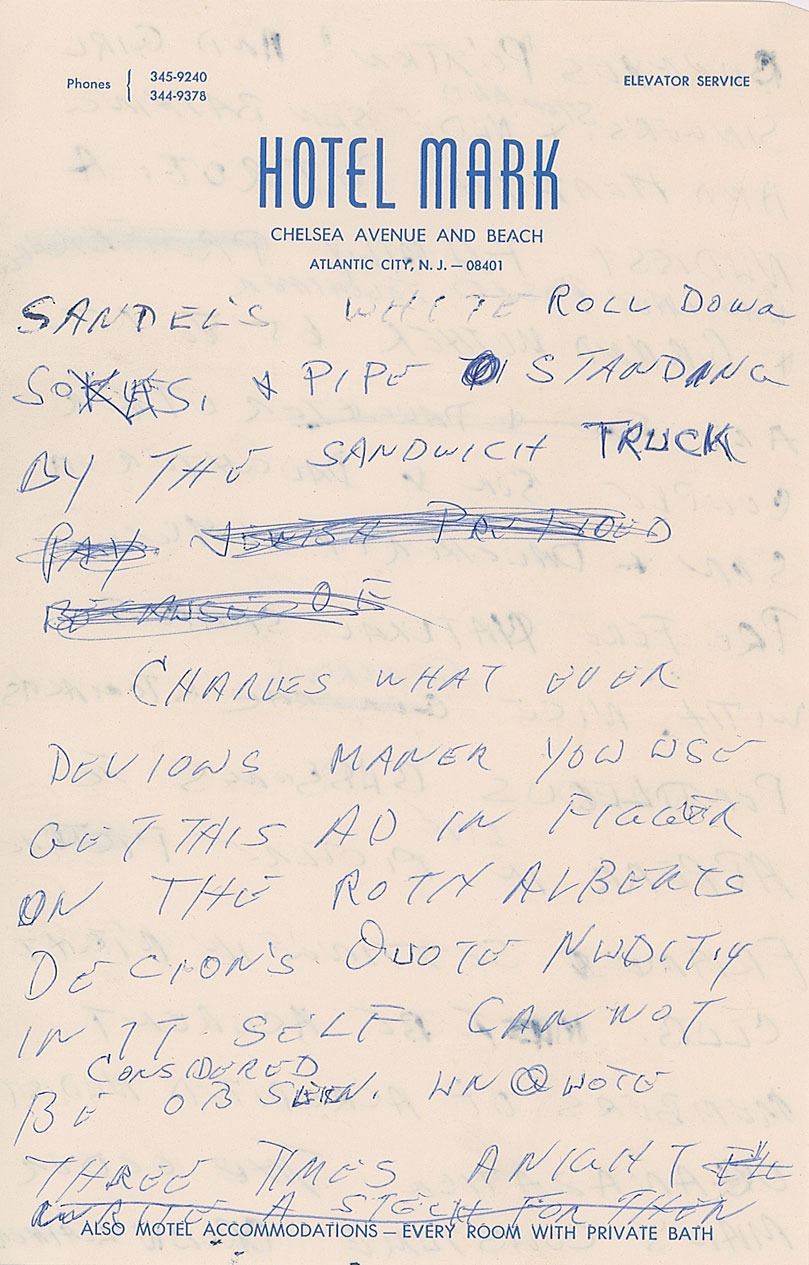 Phones 345-9240
344-9378
ELEVATOR SERVICE
HOTEL MARK
CHELSEA AVENUE AND BEACH
ATLANTIC CITY, N. J. — 08401
SANDEL'S WHITE ROLL DOWN
SOXES, & PIPE STANDING
BY THE SANDWICH TRUCK
PAY JEWISH
BECAUSE OF
CHARLES WHAT EVER
DEVIOUS MANER YOU USE
GET THIS AD IN FIGGER
ON THE ROTH ALBERTS
DECION'S QUOTE NUDITIY
IN IT SELF CAN NOT
CONSIDERED
BE OB SEEN. UN QUOTE
THREE TIMES A NIGHT
A STECH FOR THEN
ALSO MOTEL ACCOMMODATIONS — EVERY ROOM WITH PRIVATE BATH